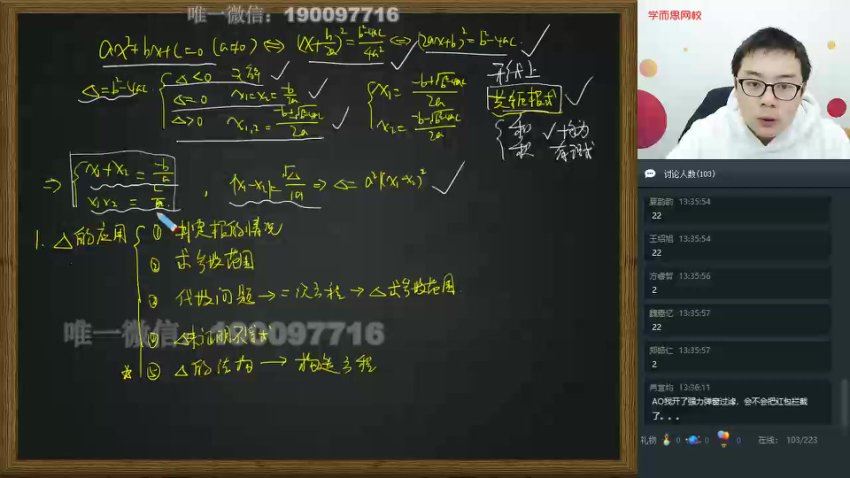 唯一微信：190097716
学而思网校
ax²+bx+c=0 (a≠0) ⇔ (x+b/2a)²=b²-4ac/4a² ⇔ (2ax+b)²=b²-4ac
Δ=b²-4ac
Δ<0 无解
Δ=0 x₁=x₂=-b/2a
Δ>0 x₁,₂=-b±√b²-4ac/2a
x₁=-b+√b²-4ac/2a
x₂=-b-√b²-4ac/2a
形式上
共轭根式
和
积
有理式
⇒ x₁+x₂=-b/a
x₁x₂=c/a
, |x₁-x₂|=√Δ/|a| ⇒ Δ=a²(x₁-x₂)²
1. Δ的应用
① 判定根的情况
② 求参数范围
③ 代数问题→二次方程→Δ求参数范围.
④ Δ来证明不等式
☆ ⑤ Δ的结构→构造方程
唯一微信：190097716
讨论人数(103)
夏韵韵 13:35:54
22
王绍旭 13:35:54
22
方睿哲 13:35:56
2
魏嘉忆 13:35:57
22
郑皓仁 13:35:57
2
13:36:11
AO我开了强力弹窗过滤，会不会把红包拦截了。。。
礼物 0 0 0 在线： 103/223